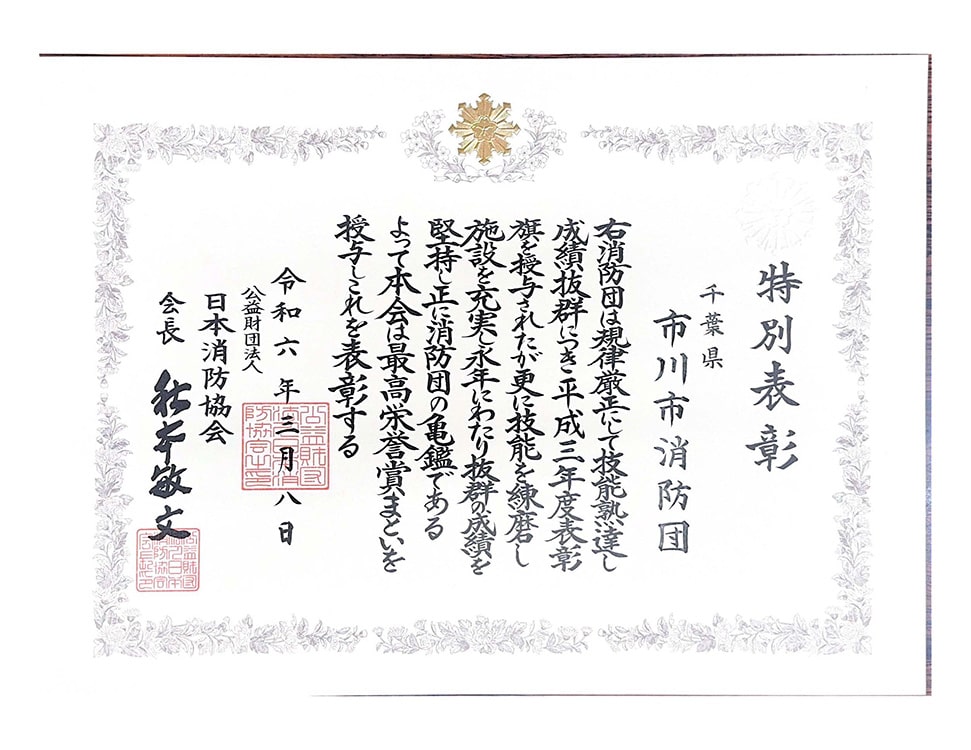 特別表彰
千葉県
市川市消防団
右消防団は規律厳正にして技能熟達し
成績抜群につき平成三年度表彰
旗を授与されたが更に技能を練磨し
施設を充実し永年にわたり抜群の成績を
堅持し正に消防団の亀鑑である
よって本会は最高栄誉賞まといを
授与しこれを表彰する
令和六年三月八日
公益財団法人
日本消防協会
会長 秋本敏文